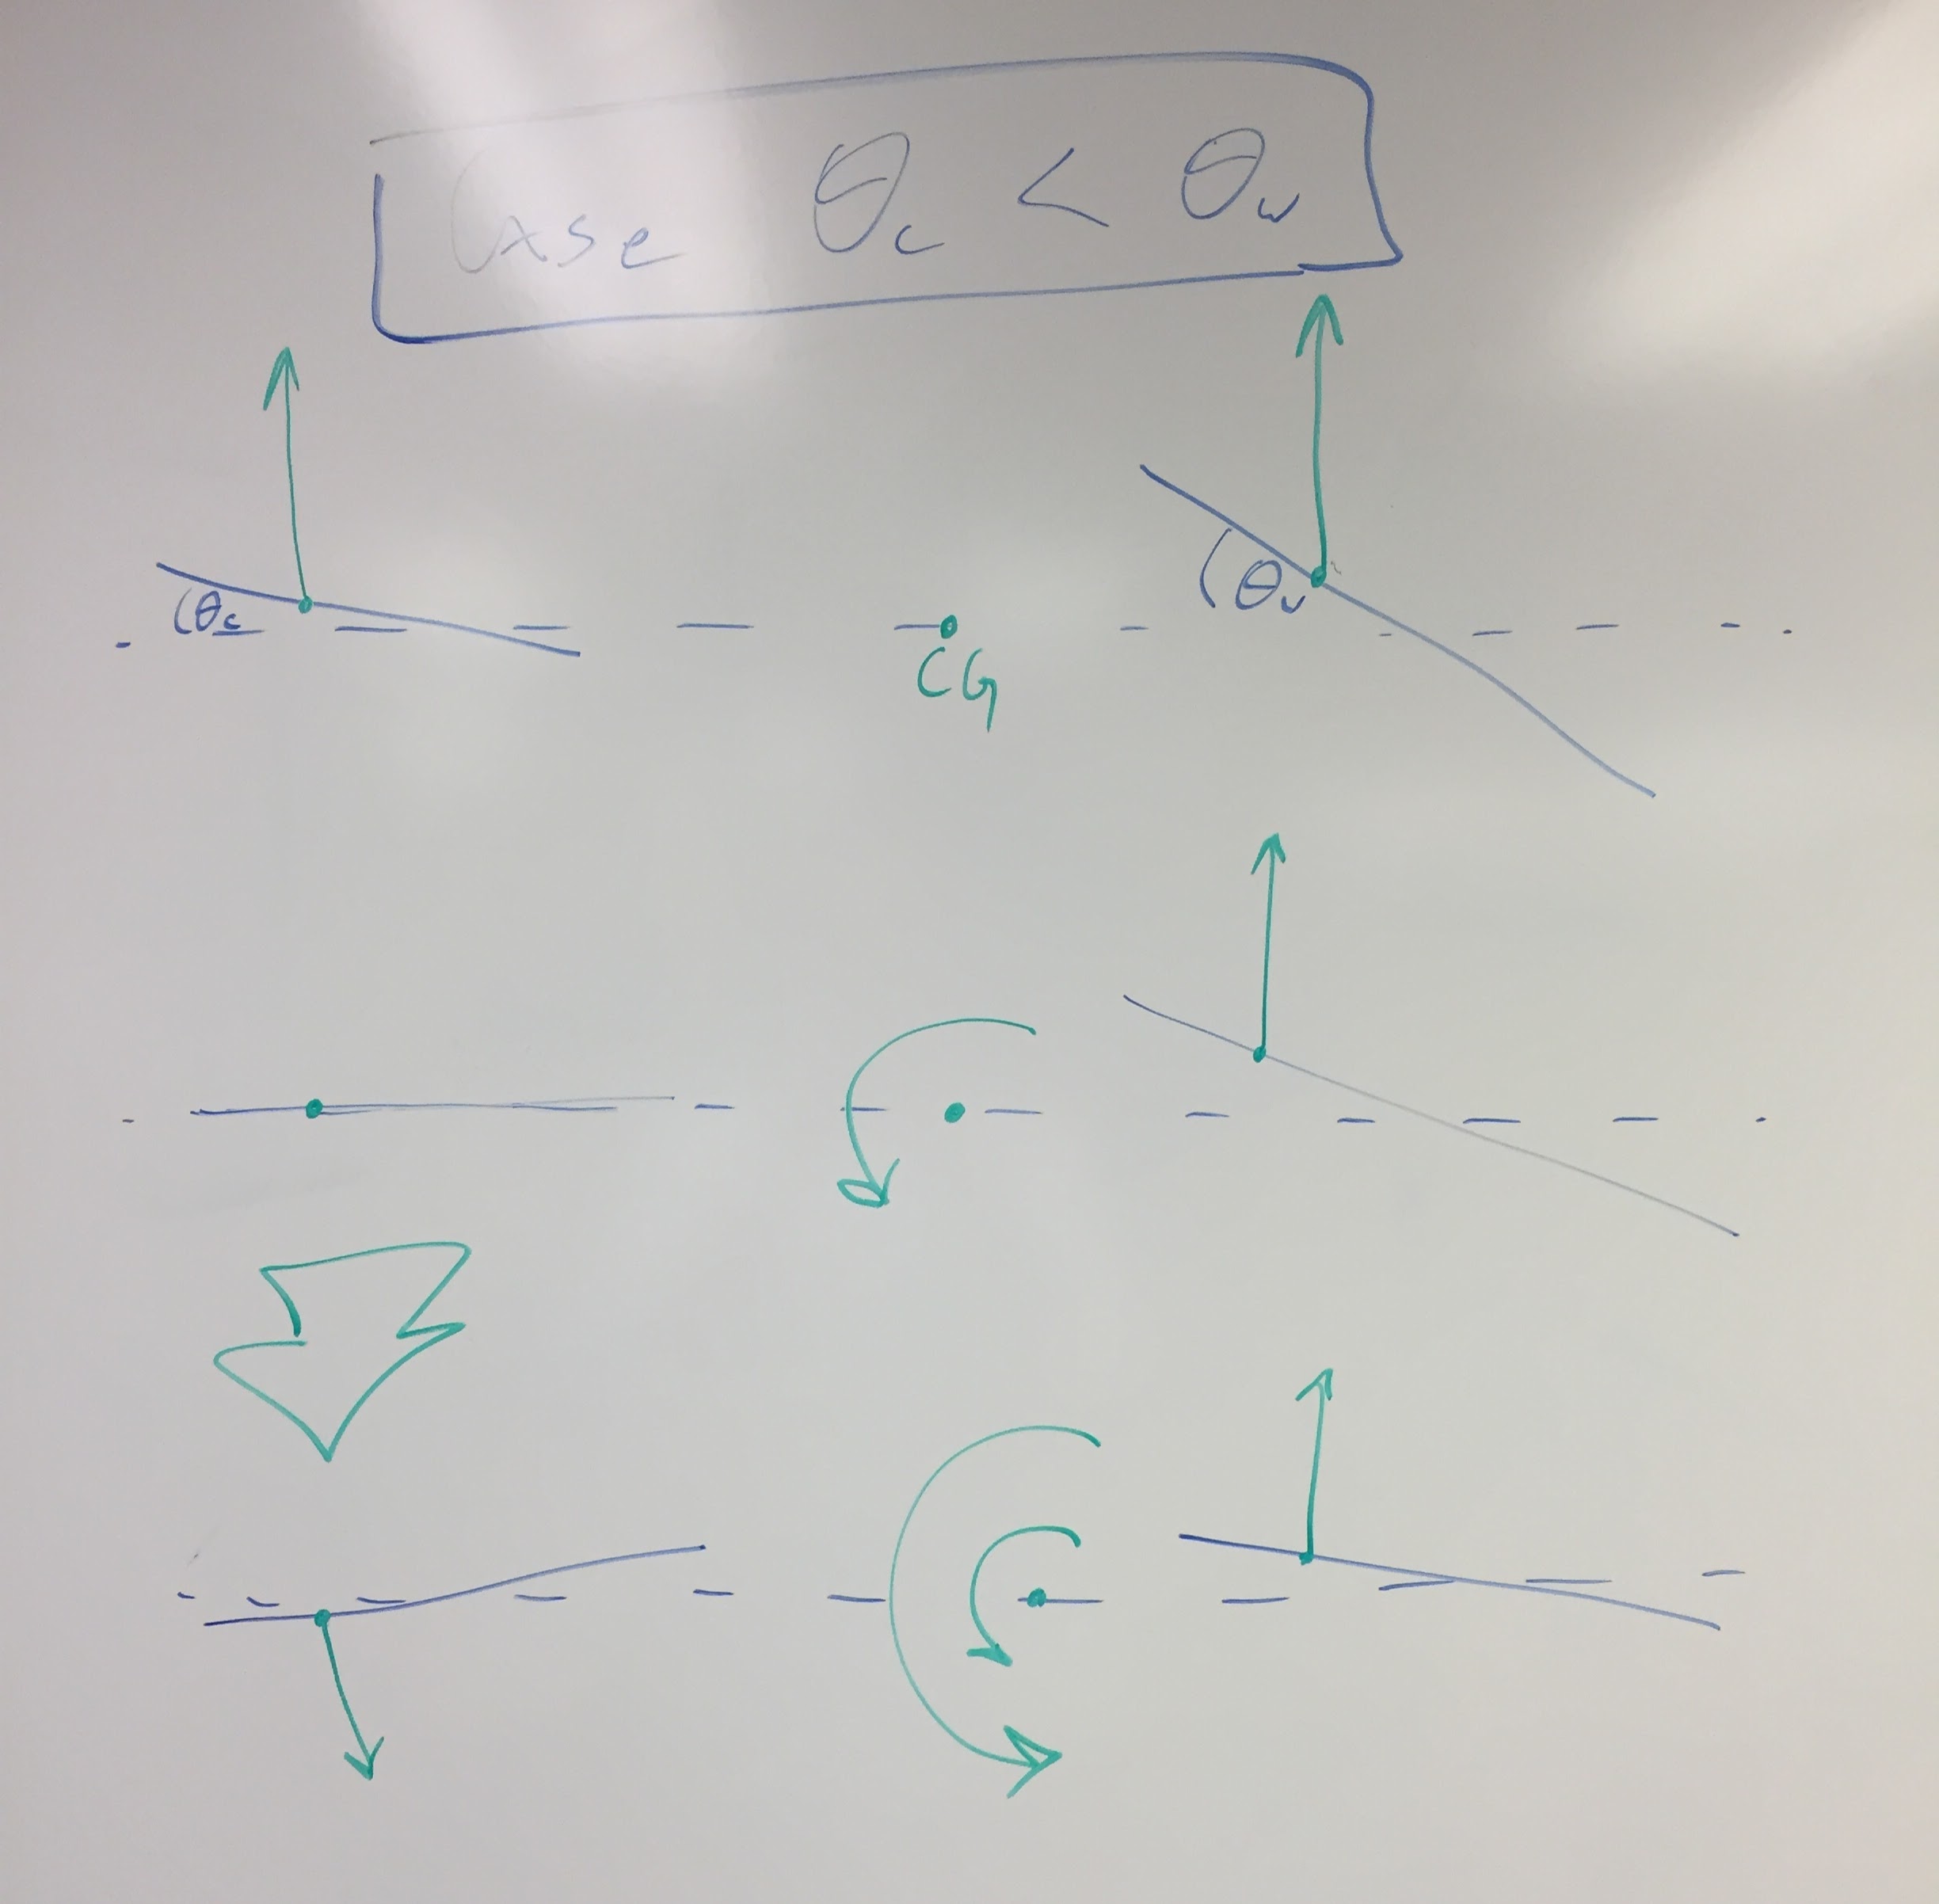 Case θc < θw
θc
θw
CG